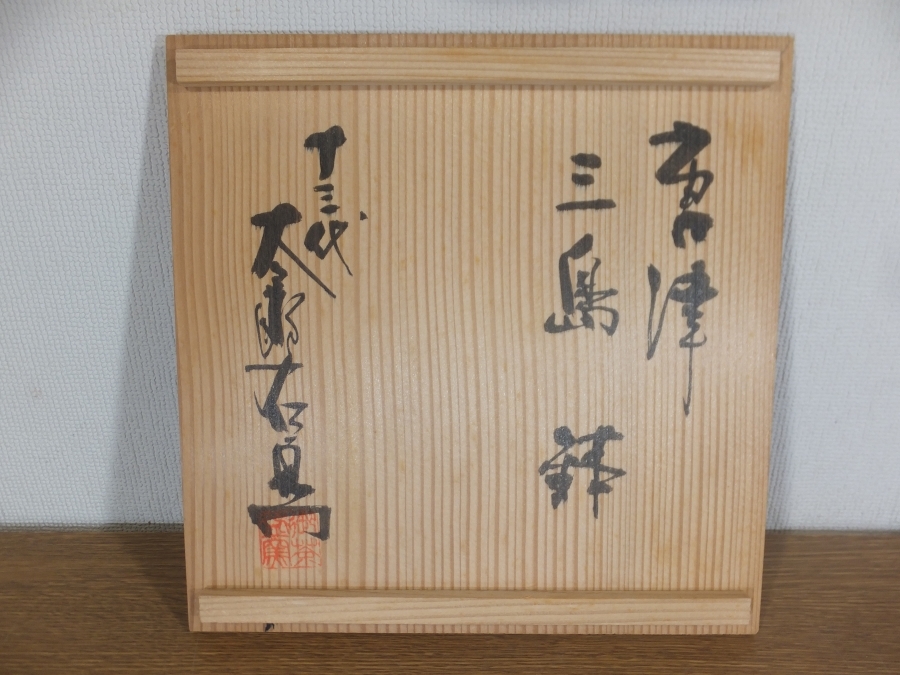 唐津
三島 鉢
十三代
太郎右衛門